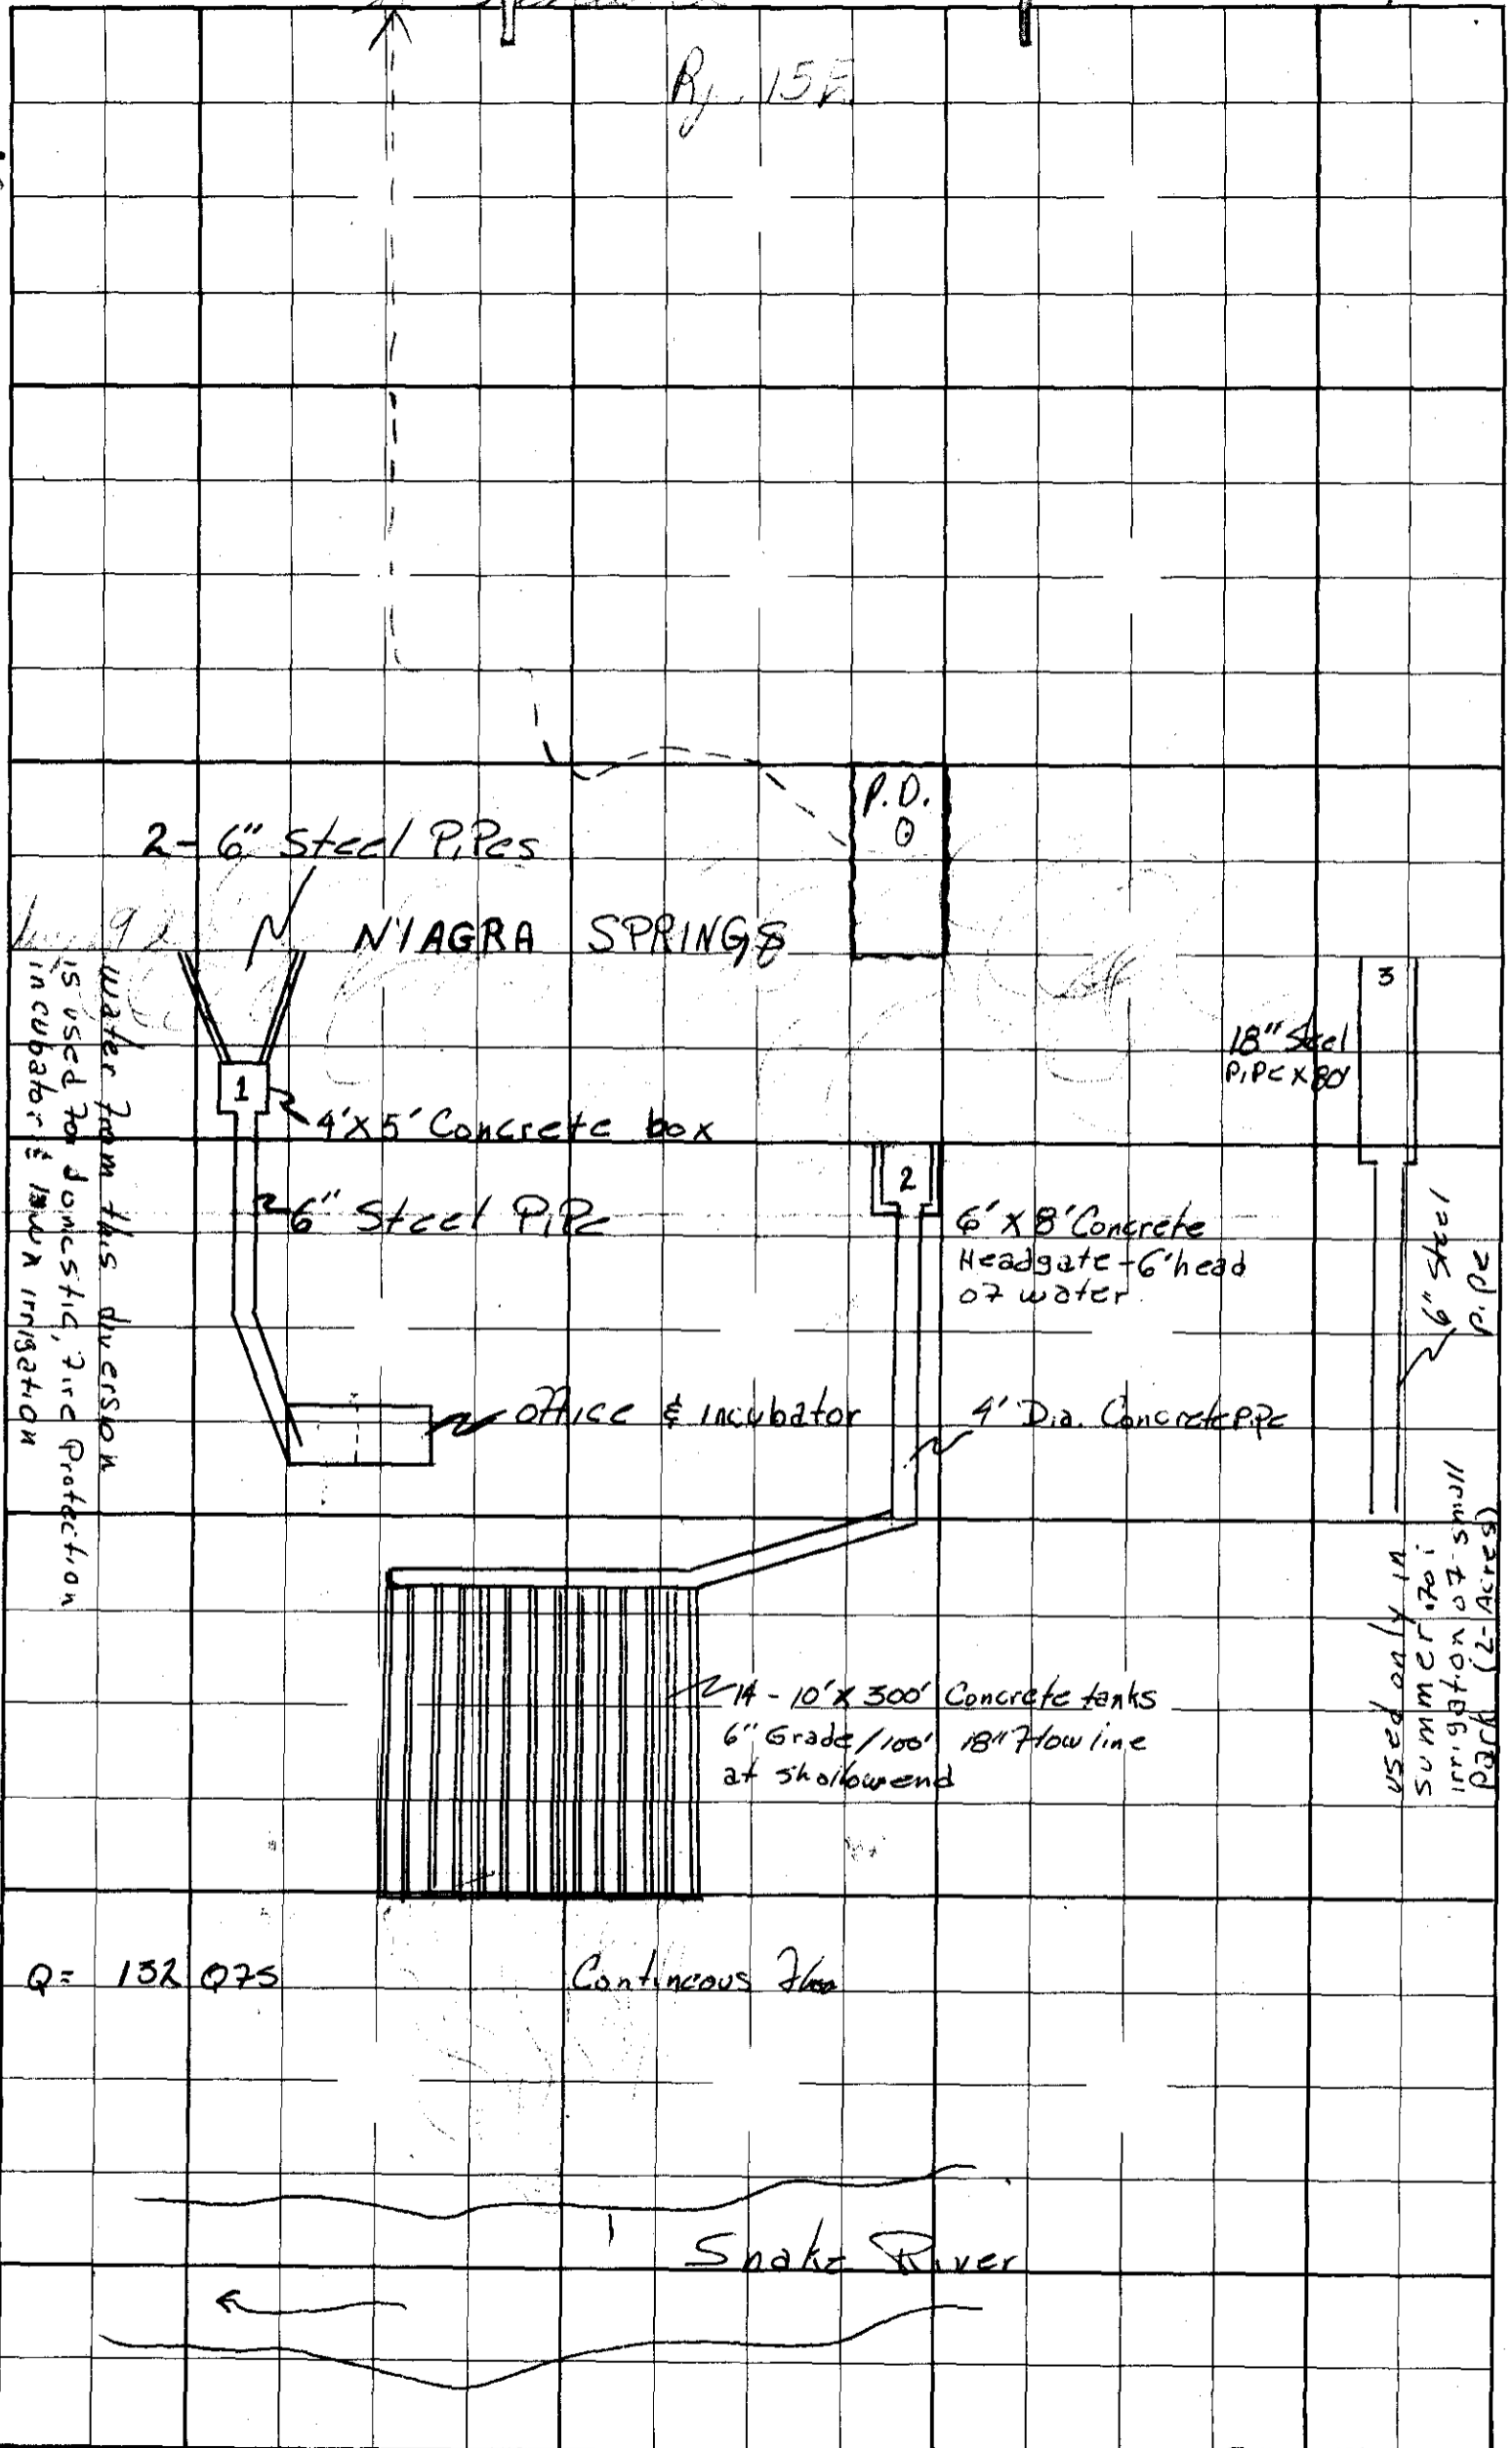 Rg. 15E
P.D.
2- 6" Steel Pipes
NIAGRA SPRINGS
3
18" Steel
Pipe x 80'
1
4' x 5' Concrete box
2
6" Steel Pipe
6' x 8' Concrete
Headgate - 6' head
of water
6" Steel
Pipe
water from this diversion
is used for domestic, fire Protection
incubator & lawn irrigation
office & incubator
4' Dia. Concrete Pipe
used only in
summer for
irrigation of small
Park (2-Acres)
14 - 10' x 300' Concrete tanks
6" Grade/100' 18" Flow line
at shallow end
Q= 132 QFS
Contineous Flow
Snake River